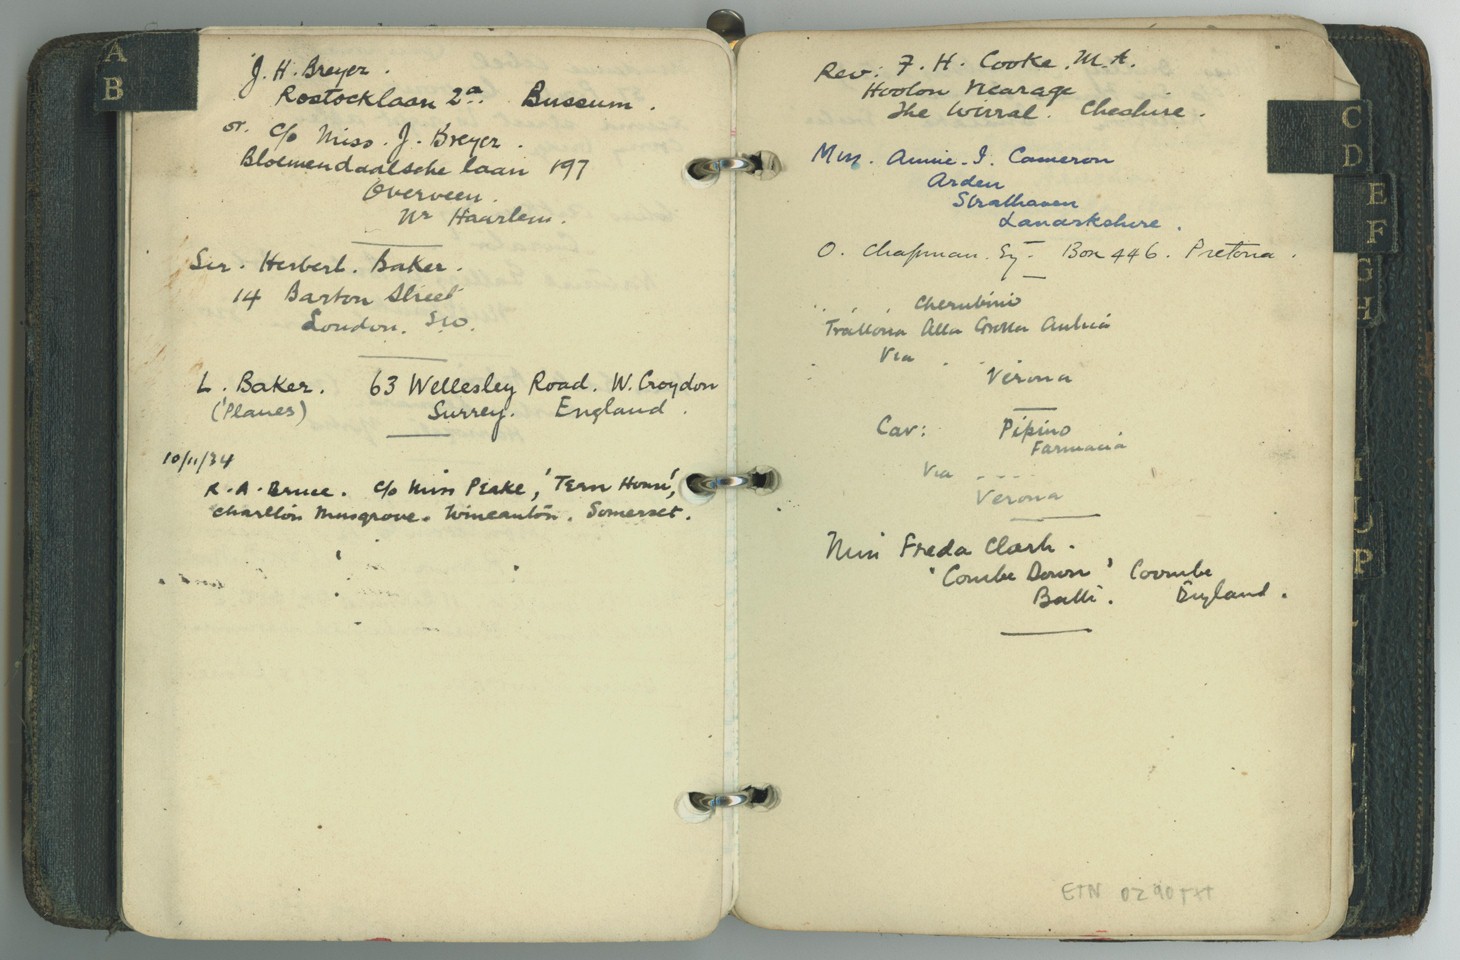 A
B
J. H. Breyer.
Rostocklaan 2a. Bussum.
or. c/o Miss. J. Breyer.
Bloemendaalsche laan 197
Overveen.
Nr Haarlem.
Sir. Herbert. Baker.
14 Barton Street
London. S.W.
L. Baker. 63 Wellesley Road. W. Croydon
(Planes) Surrey. England.
10/11/34
R. A. Bruce. c/o Miss Peake, 'Tern House',
Charlton Musgrove. Wincanton. Somerset.
Rev: F. H. Cooke. M.A.
Hooton Vicarage
The Wirral. Cheshire.
Miss. Annie. I. Cameron
Arden
Strathaven
Lanarkshire.
O. Chapman. Esq. Box 446. Pretoria.
Cherubino
Trattoria Alla Grotta
Via
Verona
Cav: Pipino
Farmacia
Via ....
Verona
Miss Freda Clark.
'Combe Down' Coombe
Bath. England.
ETN 0290
C
D
E
F
G
H
P